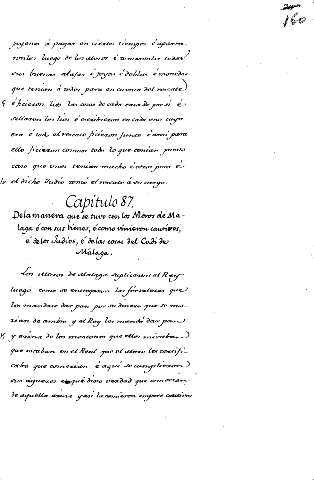 160
pusiesen á pagar en ciertos tiempos é apartaron los luego de los Moros é tomaronles todas
sus buenas alajas é joyas é doblas é monedas
que tenian é todos para en cuenta del rescate
é hicieron lios las cosas de cada casa de por si é
sellaron los lios é escribieron en cada uno cuyo
era é todo el rescate ficieron junto é ansi para
ello ficieron comun todo lo que tenian puesto
caso que unos tenian mucho é otros poco é
el dicho Judio tomó el rescate á su cargo.
Capitulo 87.
De la manera que se tuvo con los Moros de Ma-
laga é con sus bienes, é como vinieron cautivos,
é de los Judios, é de las cosas del Cadi de
Málaga.
Los Moros de Malaga suplicaron al Rey
luego como se entregaron las fortalezas que
los mandase dar pan por su dinero que se mo-
rian de ambre y el Rey les mandó dar pan
y arina de los montones que ellos miraban
que estaban en el Real que el Moro les certifi-
caba que comerian é aqui se cumplieron
sus agueros é que dixo verdad que comerian
de aquella arina y asi la comieron empero cautivos